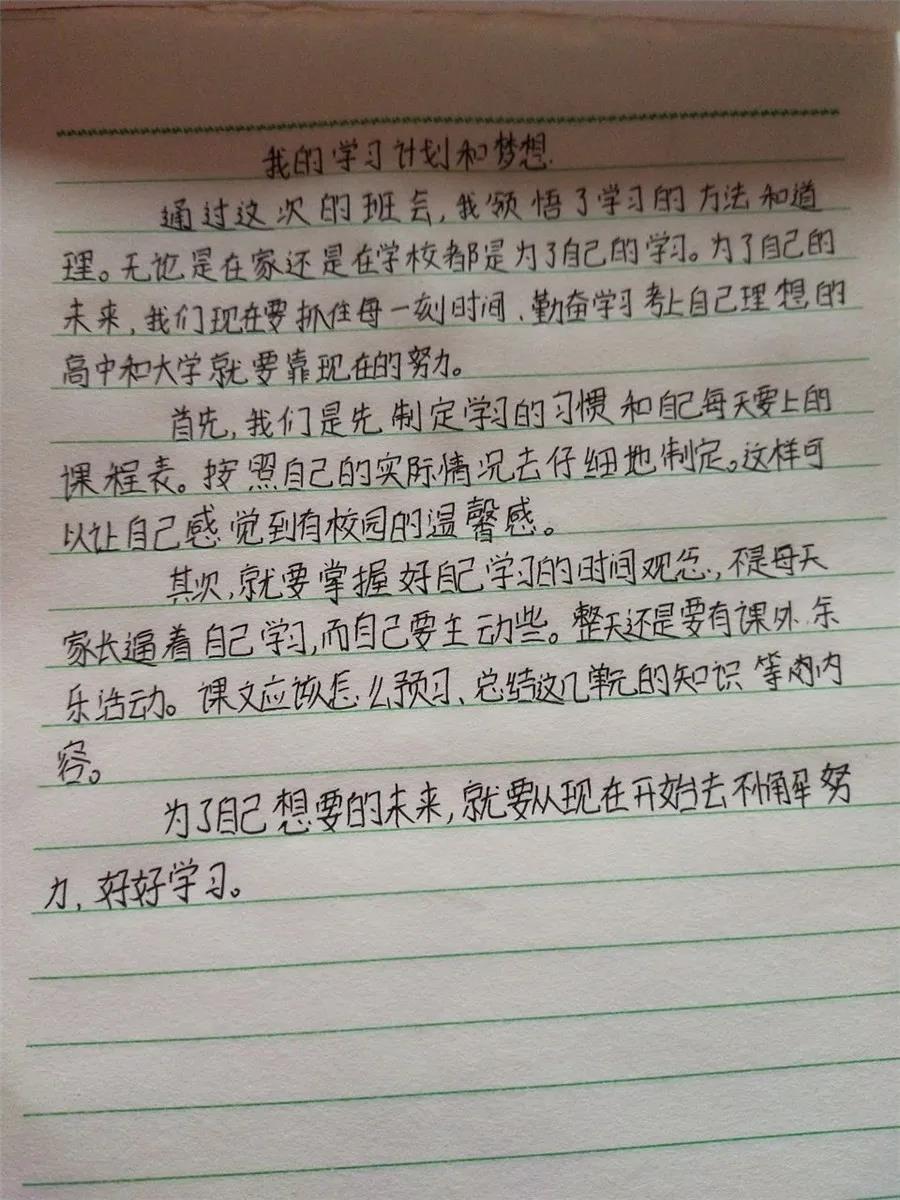 我的学习计划和梦想
通过这次的班会,我领悟了学习的方法和道
理。无论是在家还是在学校都是为了自己的学习。为了自己的
未来,我们现在要抓住每一刻时间、勤奋学习考上自己理想的
高中和大学就要靠现在的努力。
首先,我们是先制定学习的习惯和自己每天要上的
课程表。按照自己的实际情况去仔细地制定。这样可
以让自己感觉到有校园的温馨感。
其次,就要掌握好自己学习的时间观念,不是每天
家长逼着自己学习,而自己要主动些。整天还是要有课外乐
乐活动。课文应该怎么预习、总结这几单元的知识等内
容。
为了自己想要的未来,就要从现在开始去不懈努
力,好好学习。